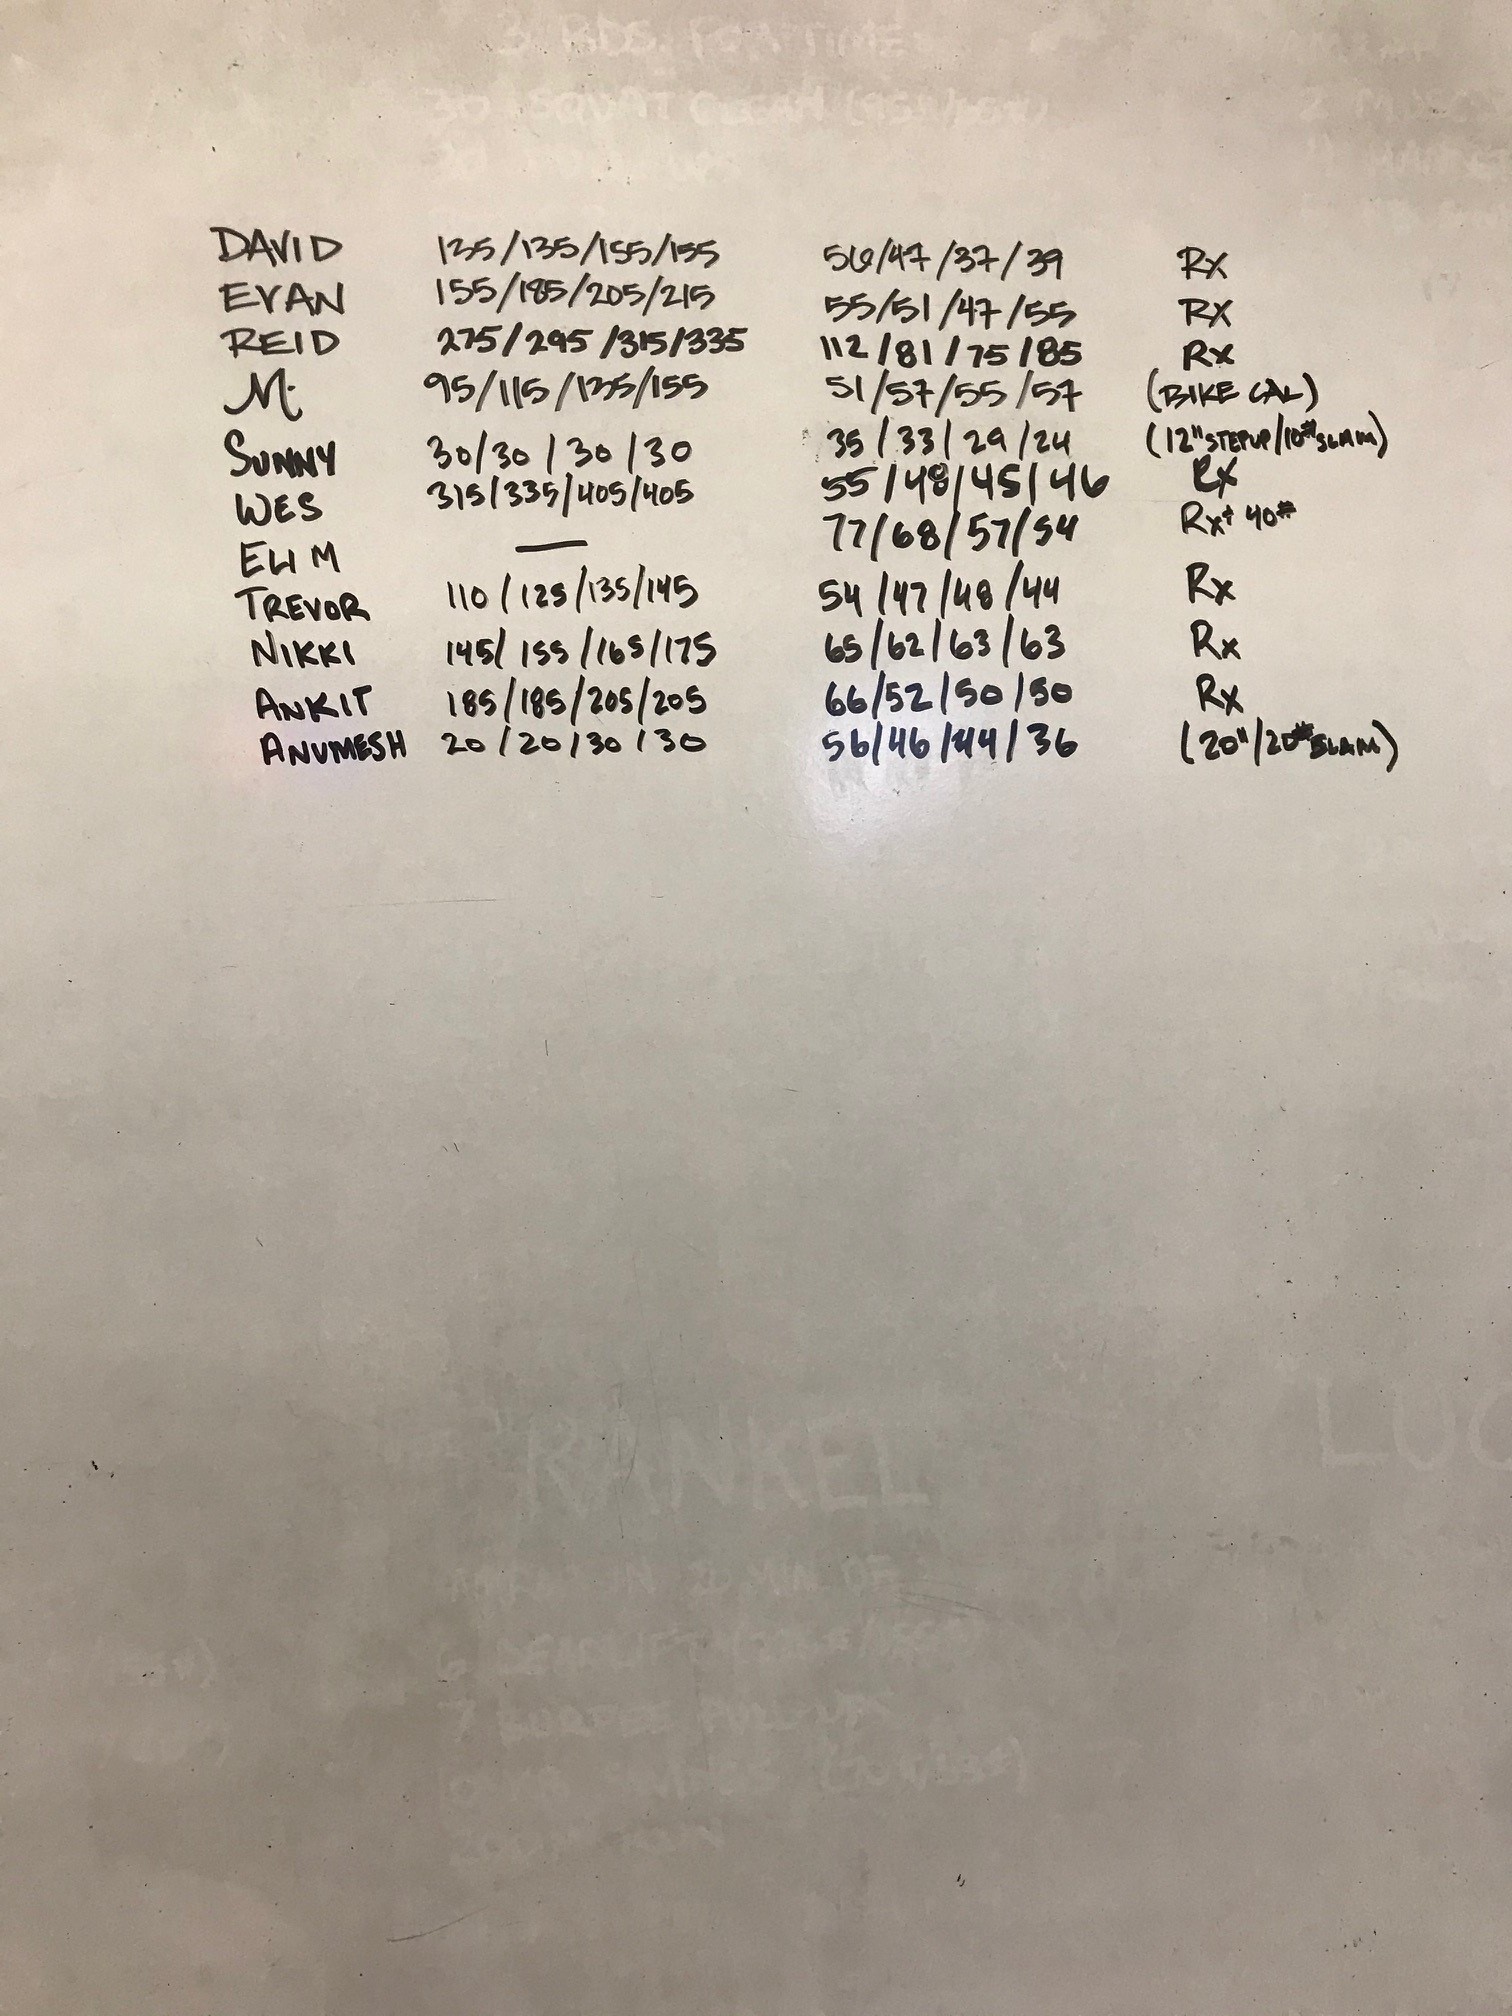 3 RDS. FOR TIME
30 SQUAT CLEAN
DAVID 135/135/155/155 56/47/37/39 Rx
EVAN 155/185/205/215 55/51/47/55 Rx
REID 275/295/315/335 112/81/75/85 Rx
M. 95/115/135/155 51/57/55/57 (BIKE CAL)
SUNNY 30/30/30/30 35/33/29/24 (12" STEPUP/10# SLAM)
WES 315/335/405/405 55/48/45/46 Rx
ELI M — 77/68/57/54 Rx+ 40#
TREVOR 110/125/135/145 54/47/48/44 Rx
NIKKI 145/155/165/175 65/62/63/63 Rx
ANKIT 185/185/205/205 66/52/50/50 Rx
ANUMESH 20/20/30/30 56/46/44/36 (20"/20# SLAM)
"RANKEL LUC
IN 20 MIN OF
6 DEADLIFT
7 BURPEE PULL-UP
10 KB SWINGS